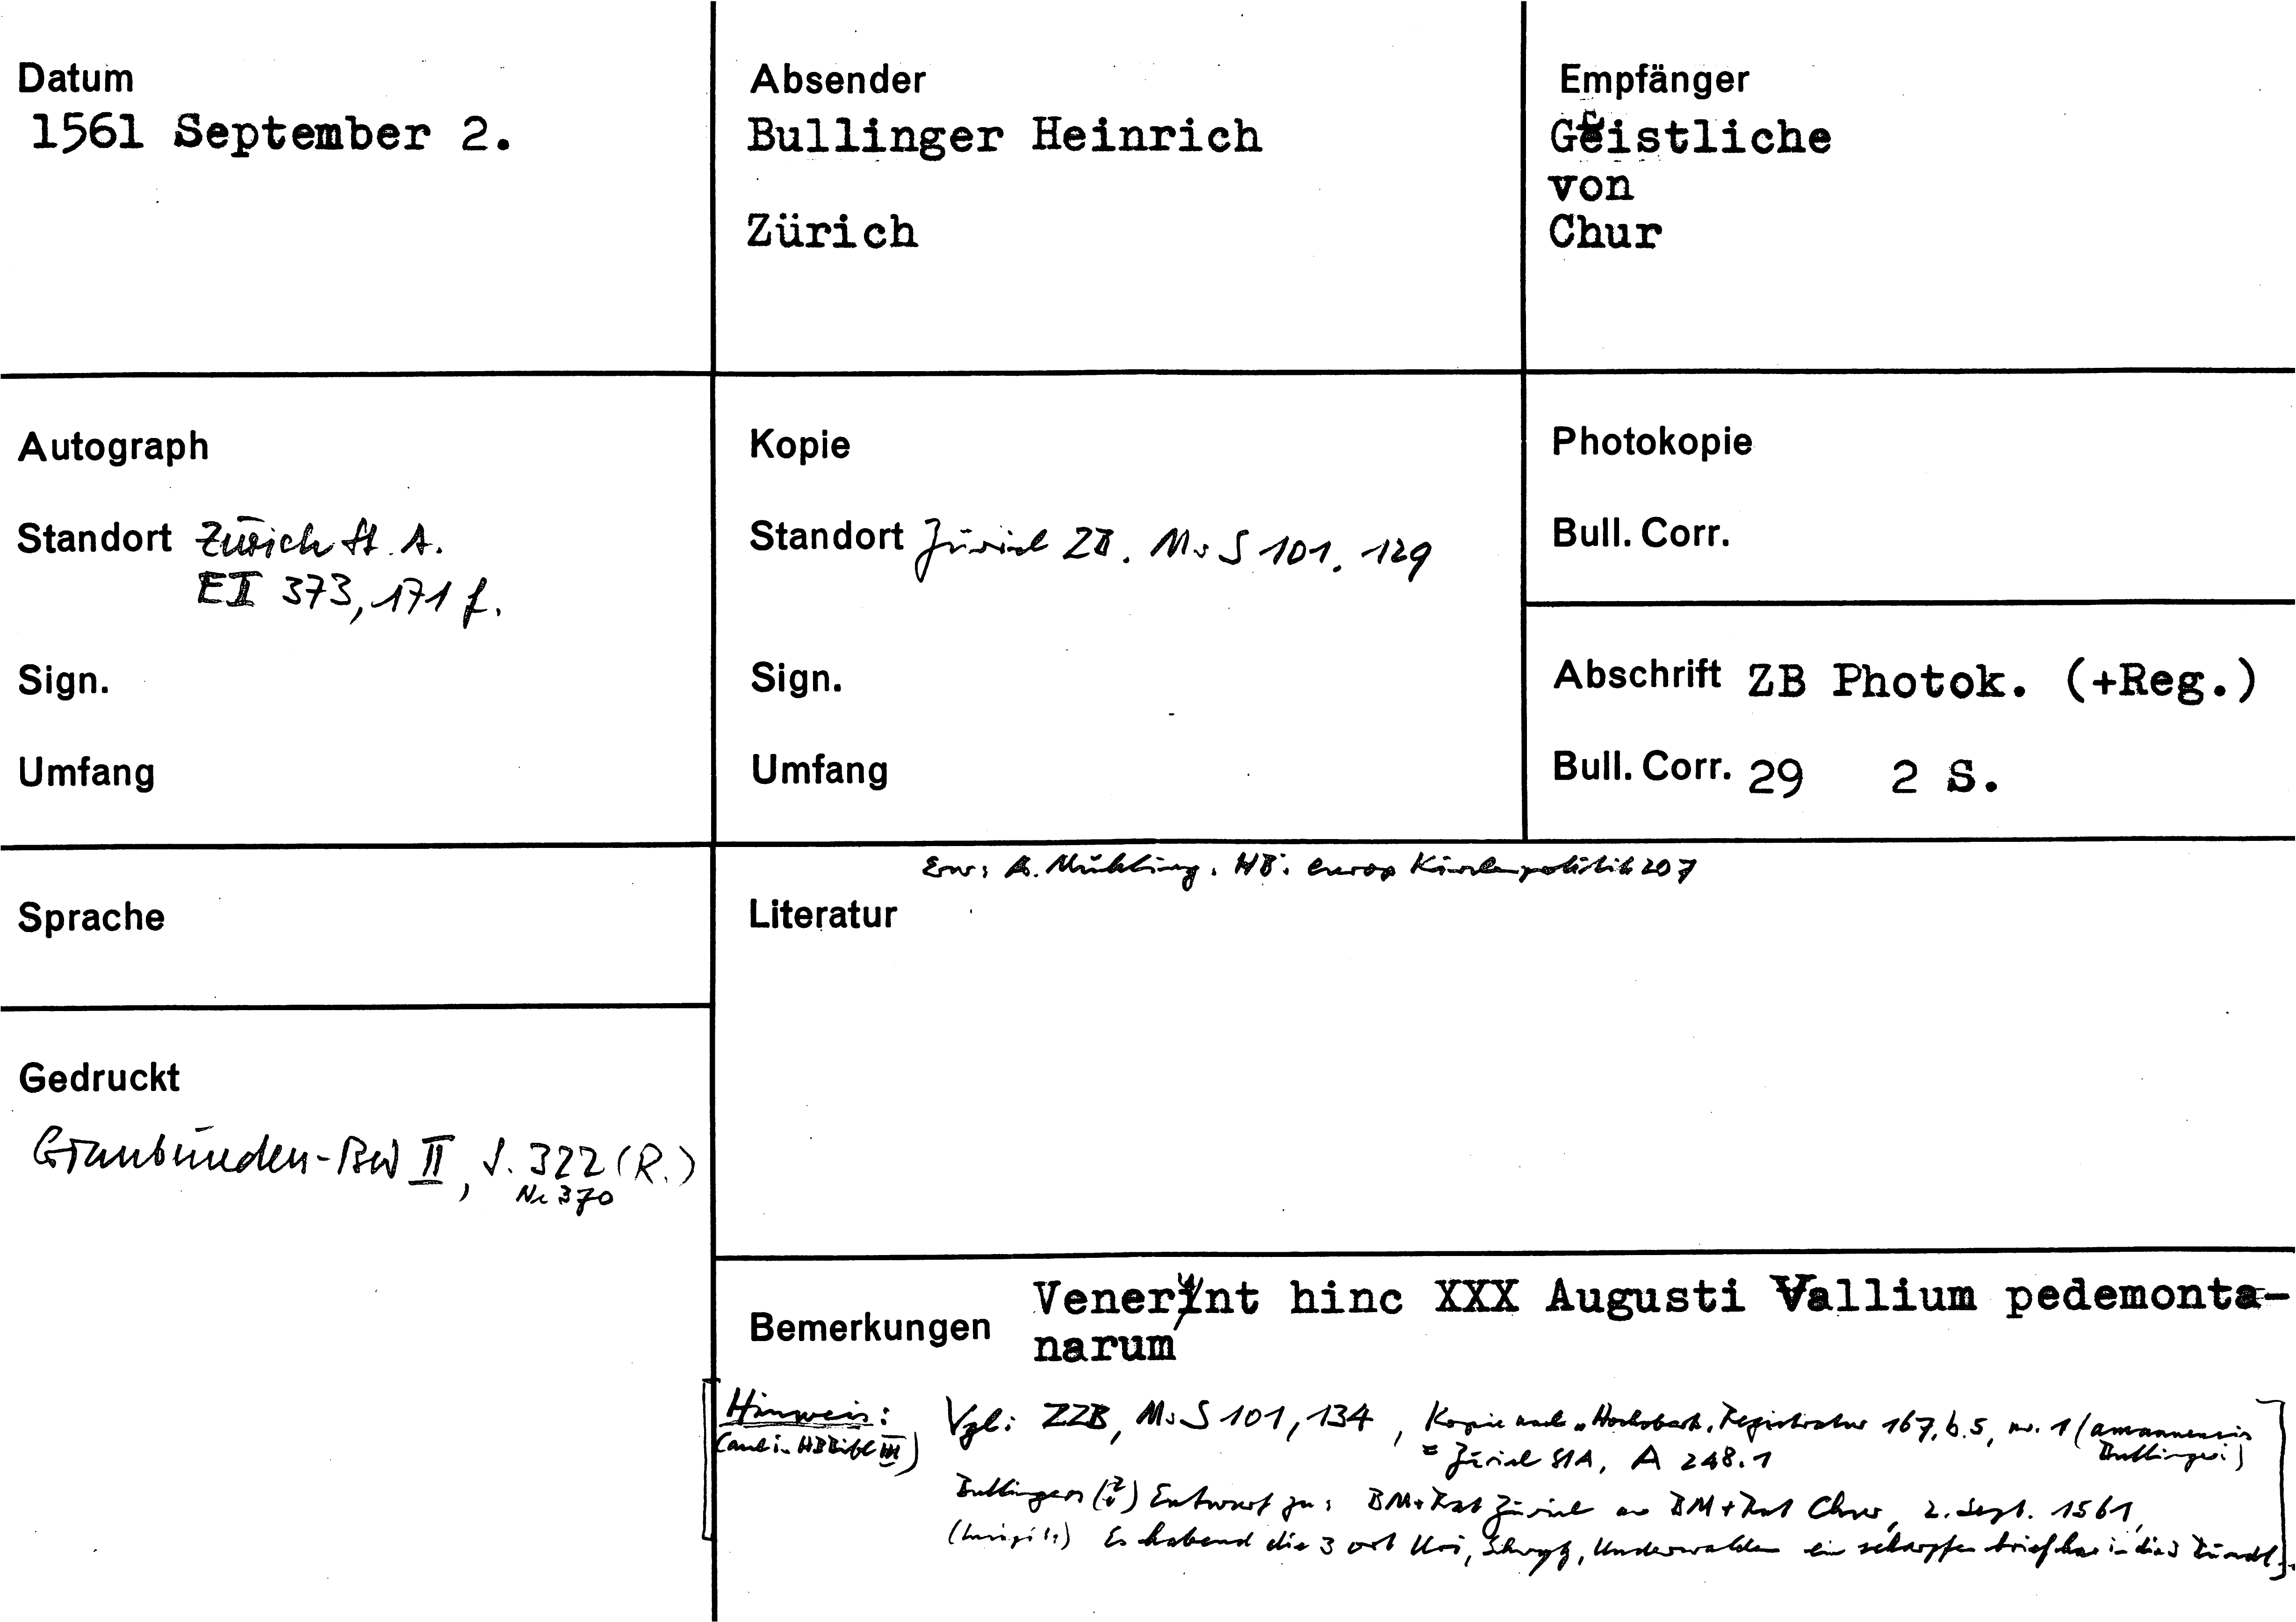 Datum
1561 September 2.
Absender
Bullinger Heinrich
Zürich
Empfänger
Geistliche
von
Chur
Autograph
Standort Zürich St. A.
EII 373, 171 f.
Sign.
Umfang
Kopie
Standort Zürich ZB. Ms S 101. 129
Sign.
Umfang
Photokopie
Bull. Corr.
Abschrift ZB Photok. (+Reg.)
Bull. Corr. 29 2 S.
Sprache
Gedruckt
Graubünden-Bw II, S. 322 (R.)
Nr 370
Erw: A. Mühling. HB: europ Kirchenpolitik 207
Literatur
Bemerkungen
Venerynt hinc XXX Augusti Vallium pedemonta-
narum
Hinweis:
(auch in HBBibl III)
Vgl: ZZB, Ms S 101, 134, Kopie nach „Hochobark. Registratur 167, b. 5, nr. 1 (amannensis
Bullingeri)
= Zürich StA, A 248.1
Bullingers (?) Entwurf zu: BM + Rat Zürich an BM + Rat Chur, 2. Sept. 1561,
Es habend die 3 ort Uri, Schwyz, Underwalden ein scharpfen brief har in die 3 Pündt